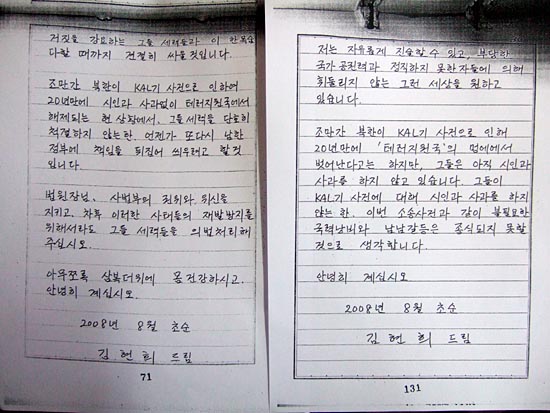 거짓을 강요하는 그들 세력들과 이 한목숨
다할 때까지 견결히 싸울것입니다.
조만간 북한이 KAL기 사건으로 인하여
20년만에 시인과 사과없이 테러지원국에서
해제되는 현 상황에서, 그들 세력을 단호히
척결하지 않는한, 언젠가 또다시 남한
정부에 책임을 뒤집어 씌우려고 할것
입니다.
법원장님, 사법부의 권위와 위신을
지키고, 차후 이러한 사태들의 재발방지를
위해서라도 그들 세력들을 의법처리해
주십시오.
아무쪼록 삼복더위에 몸건강하시고,
안녕히 계십시오.
2008년 8월 초순
김현희 드림
71
저는 자유롭게 진술할수 있고 부당한
국가공권력과 정직하지 못한자들에 의해
휘둘리지 않는 그런 세상을 원하고
있습니다.
조만간 북한이 KAL기 사건으로 인해
20년만에 '테러지원국'의 멍에에서
벗어난다고는 하지만, 그들은 아직 시인과
사과를 하지 않고 있습니다. 그들이
KAL기 사건에 대해 시인과 사과를 하지
않는 한, 이번 소송사건과 같이 불필요한
국력낭비와 남남갈등은 종식되지 못할
것으로 생각합니다.
안녕히 계십시오.
2008년 8월 초순
김현희 드림
131